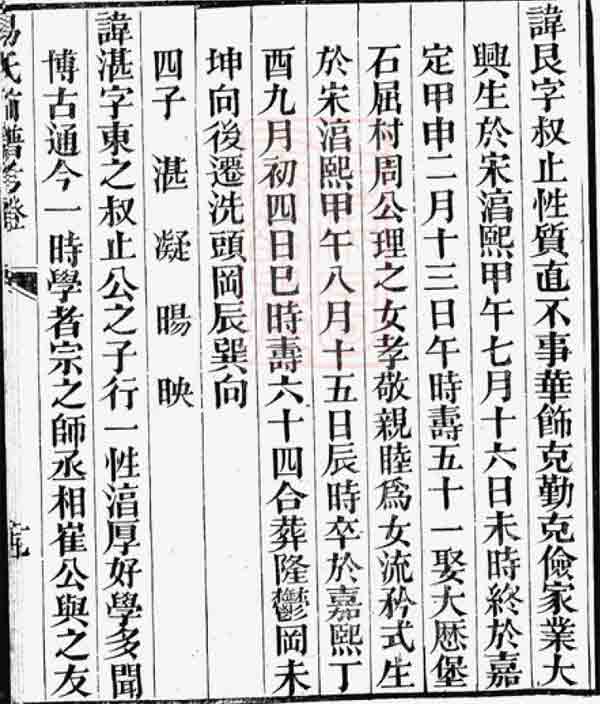 諱艮字叔止性質直不事華飾克勤克儉家業大
興生於宋湻熙甲午七月十六日未時終於嘉
定甲申二月十三日午時壽五十一娶大厯堡
石屈村周公理之女孝敬親睦爲女流矜式生
於宋湻熙甲午八月十五日辰時卒於嘉熙丁
酉九月初四日巳時壽六十四合葬隆鬱岡未
坤向後遷洗頭岡辰巽向
四子 湛 凝 暘 映
諱湛字東之叔止公之子行一性湻厚好學多聞
博古通今一時學者宗之師丞相崔公與之友
氏 譜考證